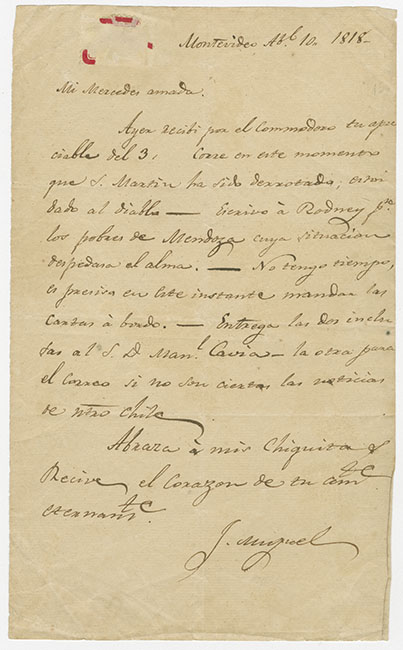 Montevideo Ab.l 10. 1818–
Mi Mercedes amada.
Ayer recivi por el Commodoro tu apre
ciable del 3. Corre en este momento
que S. Martin ha sido derrotado; estoi
dado al diablo — Escrivo à Rodney p.r
los pobres de Mendoza cuya situacion
despedasa el alma. — No tengo tiempo,
es preciso en este instante mandar las
cartas à bordo. — Entrega las dos inclu
sas al S. D. Man.l Cavia — la otra para
el Correo si no son ciertas las noticias
de ntro Chile
Abraza à mis Chiquitas y
Recive el Corazon de tu am.te
eternam.te
J. Miguel